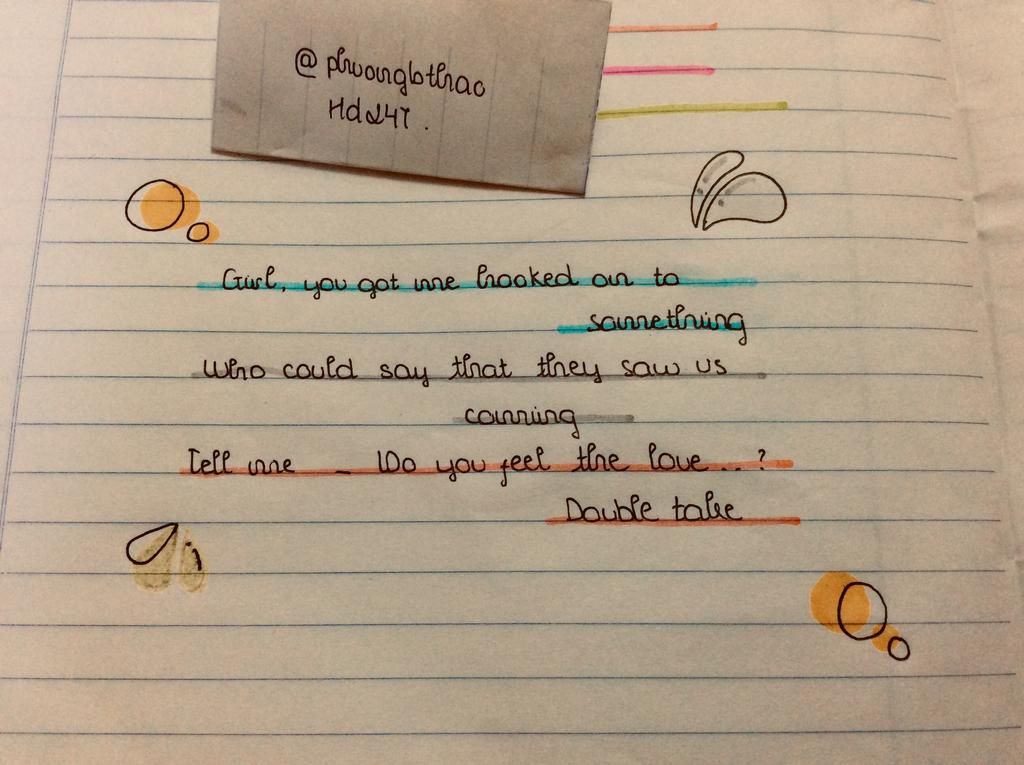 @ phuongbthao
Hd247.
Girl, you got me hooked on to
something
Who could say that they saw us
coming
Tell me _ Do you feel the love...?
Double take